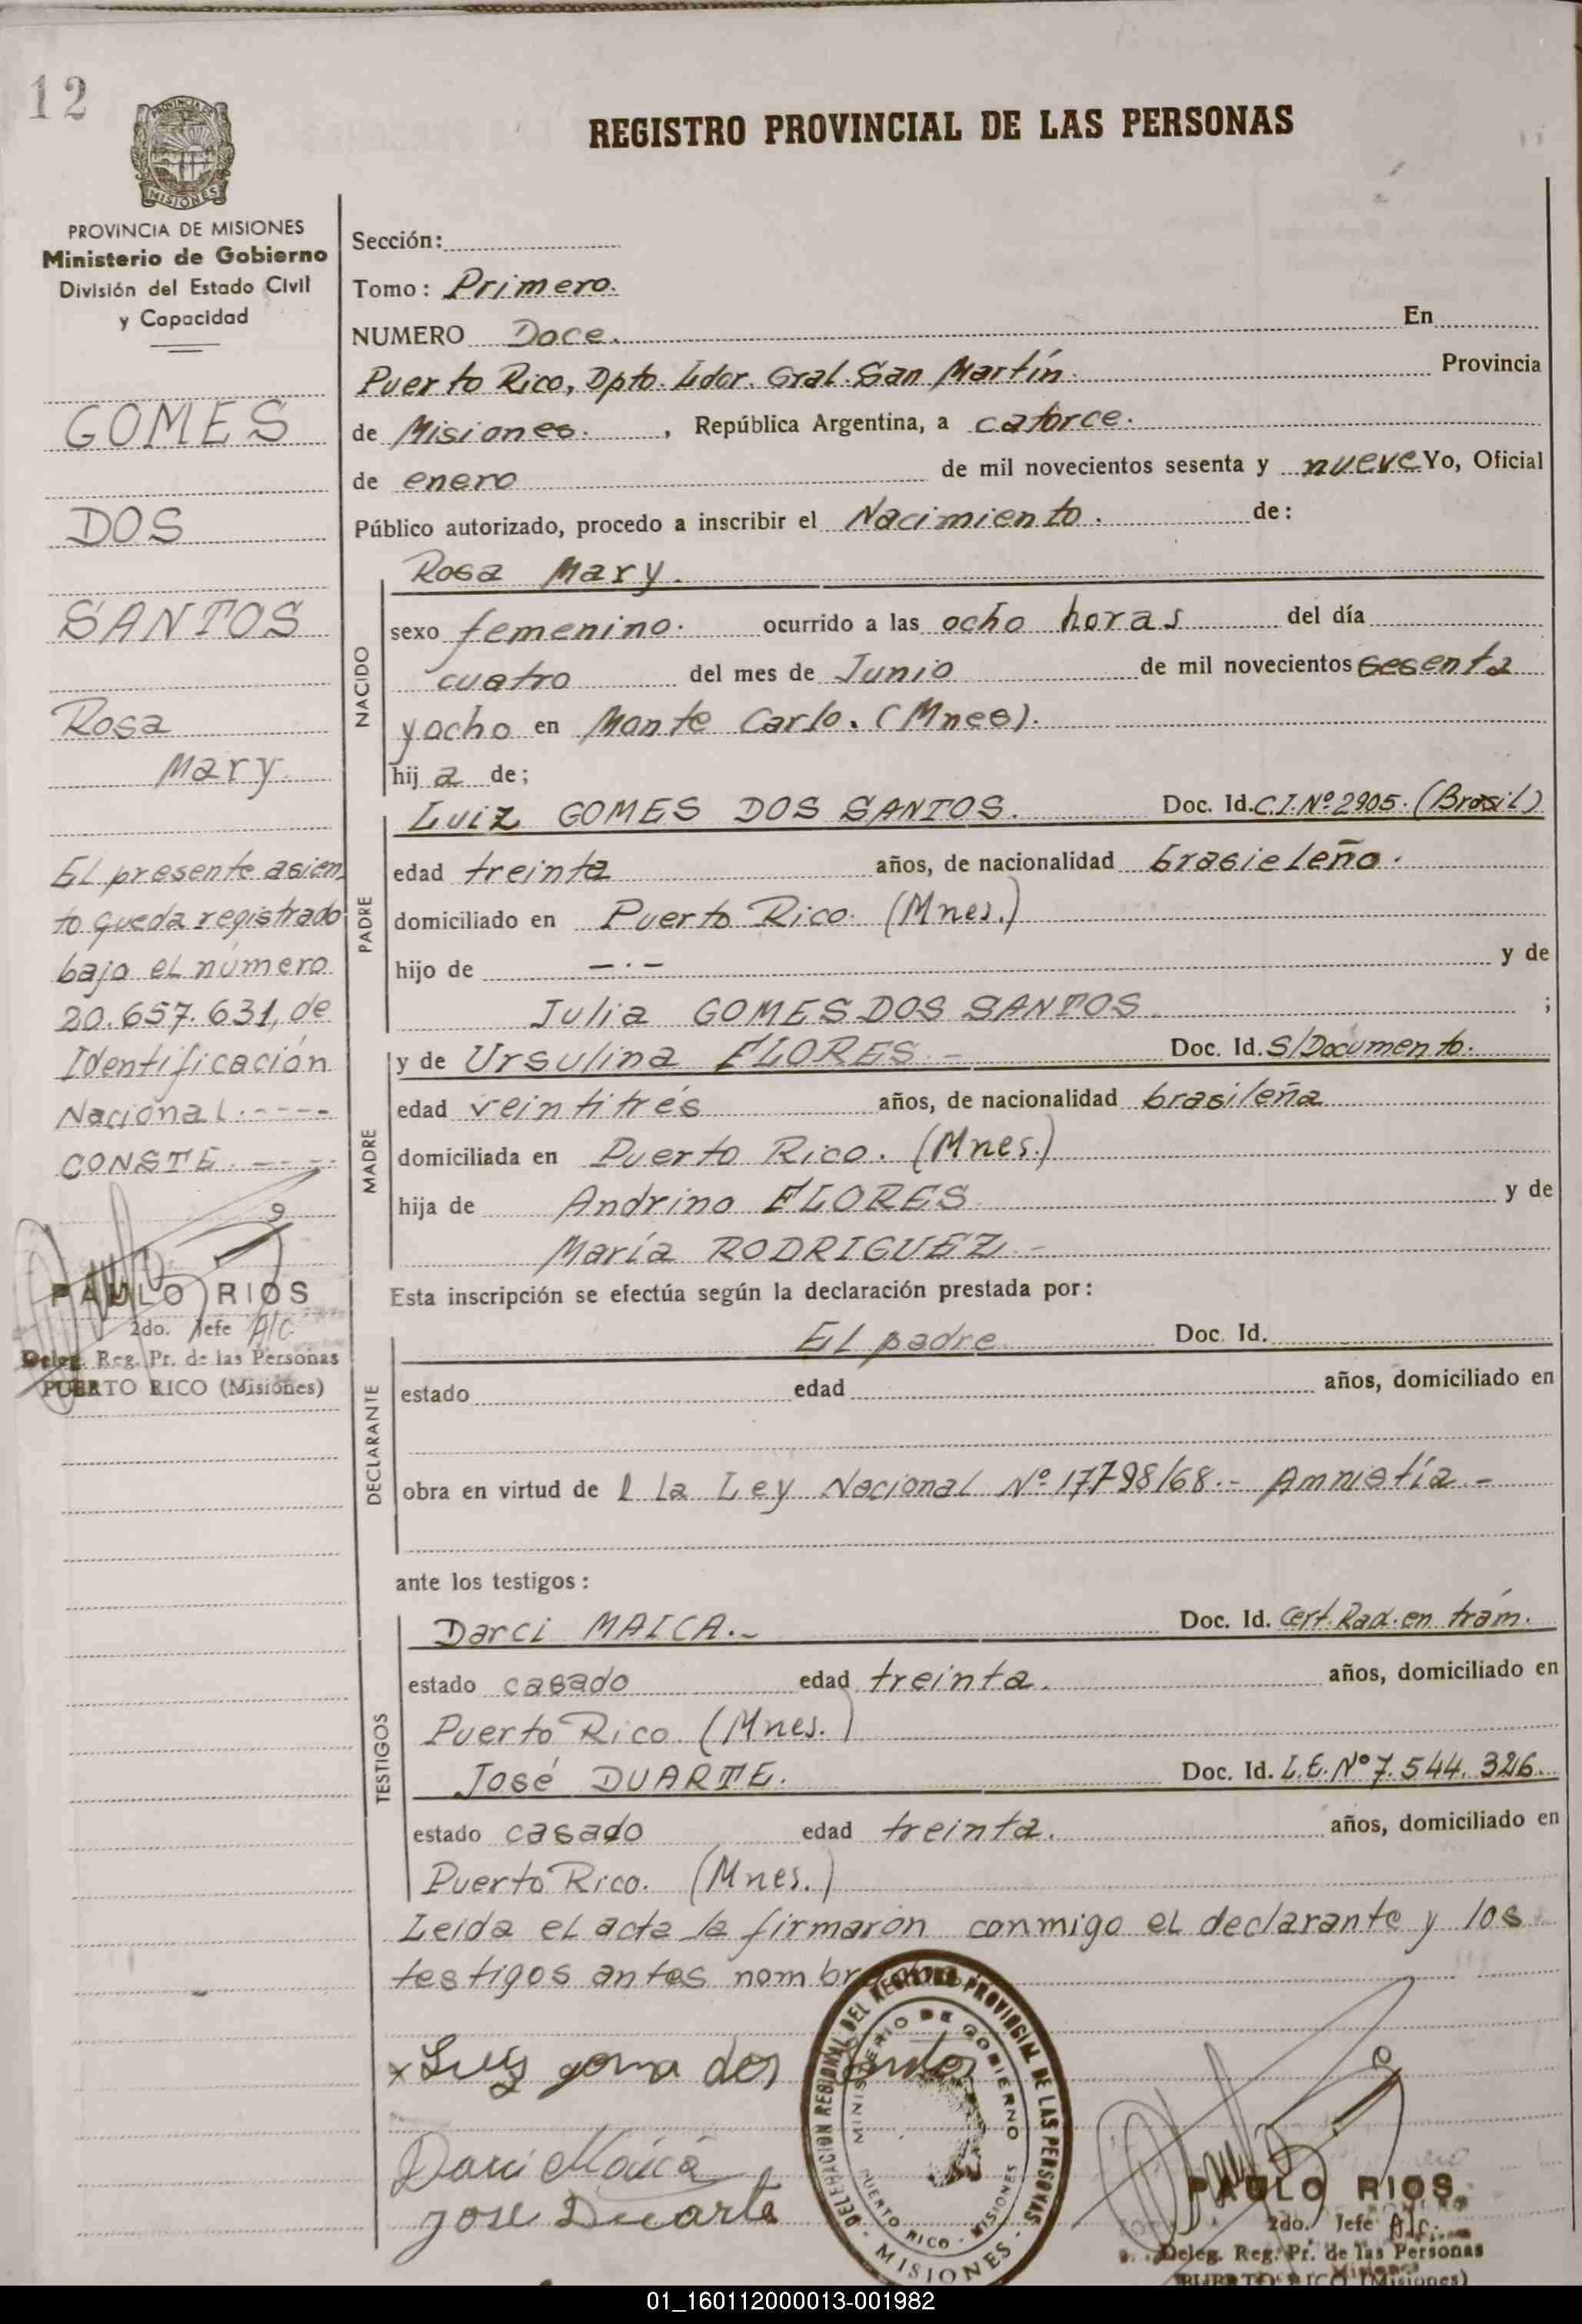 12
MISIONES
PROVINCIA DE MISIONES
Ministerio de Gobierno
División del Estado Civil
y Capacidad
GOMES
DOS
SANTOS
Rosa
Mary.
El presente asien
to queda registrado
bajo el número
20.657.631, de
Identificación
Nacional.----
CONSTE.----
PAULO RIOS
2do. Jefe A/C.
Deleg. Reg. Pr. de las Personas
PUERTO RICO (Misiones)
REGISTRO PROVINCIAL DE LAS PERSONAS
Sección:
Tomo: Primero.
NUMERO Doce. En
Puerto Rico, Dpto. Ldor. Gral. San Martín. Provincia
de Misiones. , República Argentina, a catorce.
de enero de mil novecientos sesenta y nueve Yo, Oficial
Público autorizado, procedo a inscribir el Nacimiento. de:
Rosa Mary.
NACIDO
sexo femenino. ocurrido a las ocho horas del día
cuatro del mes de Junio de mil novecientos sesenta
y ocho en Monte Carlo. (Mnes).
hij a de;
PADRE
Luiz GOMES DOS SANTOS. Doc. Id. C.I. Nº 2905. (Brasil)
edad treinta años, de nacionalidad brasieleño.
domiciliado en Puerto Rico. (Mnes.)
hijo de -.- y de
Julia GOMES DOS SANTOS ;
MADRE
y de Ursulina FLORES.- Doc. Id. S/Documento.
edad veintitrés años, de nacionalidad brasileña
domiciliada en Puerto Rico. (Mnes.)
hija de Andrino FLORES y de
María RODRIGUEZ.-
Esta inscripción se efectúa según la declaración prestada por:
DECLARANTE
El padre Doc. Id.
estado edad años, domiciliado en
obra en virtud de l la Ley Nacional Nº 17798/68.- Amnistía.-
ante los testigos:
TESTIGOS
Darci MAICA.- Doc. Id. Cert. Rad. en trám.
estado casado edad treinta. años, domiciliado en
Puerto Rico. (Mnes.)
José DUARTE. Doc. Id. L.E. Nº 7.544.326.
estado casado edad treinta. años, domiciliado en
Puerto Rico. (Mnes.)
Leída el acta la firmaron conmigo el declarante y los
testigos antes nombrados.
x Luiz goma dos Santos
Darci Maica
Jose Duarte
DELEGACION REGIONAL DEL REGISTRO PROVINCIAL DE LAS PERSONAS
- MISIONES -
MINISTERIO DE GOBIERNO
PUERTO RICO - MISIONES
PAULO RIOS
2do. Jefe A/c.
Deleg. Reg. Pr. de las Personas
PUERTO RICO (Misiones)
01_160112000013-001982